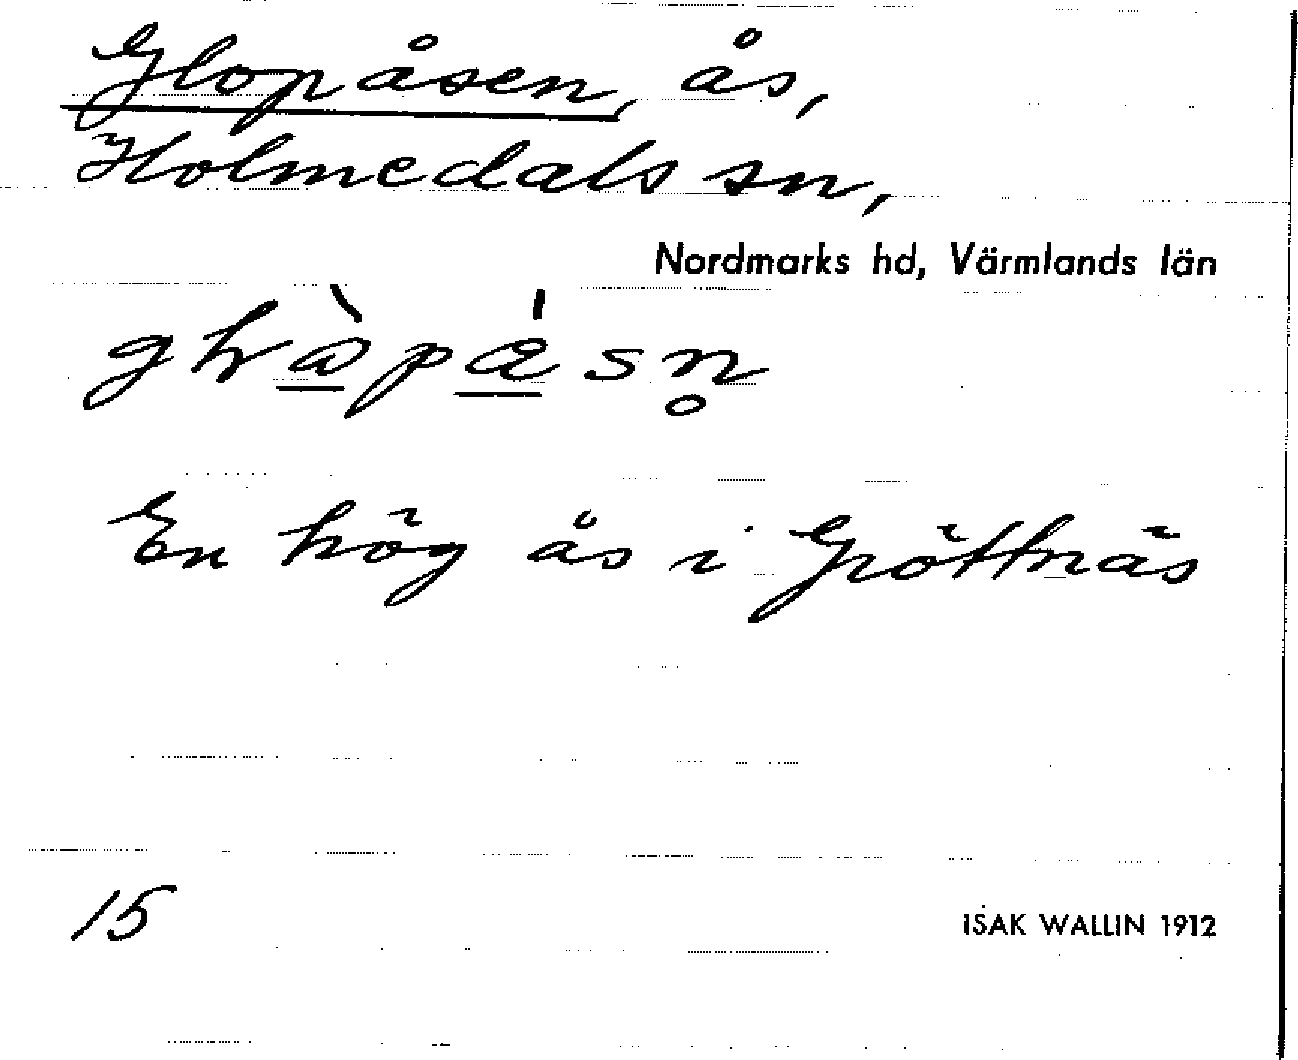 Glopåsen, ås,
Holmedals sn,
Nordmarks hd, Värmlands län
En hög ås i Gröttnäs
15
ISAK WALLIN 1912